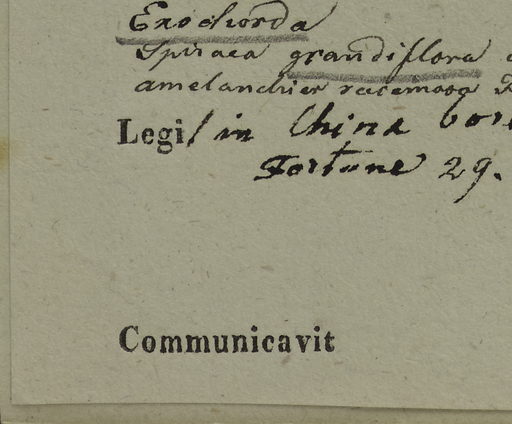 Exochorda
Spiraea grandiflora
amelanchier racemosa
Legi/ in China bore
Fortune 29.
Communicavit